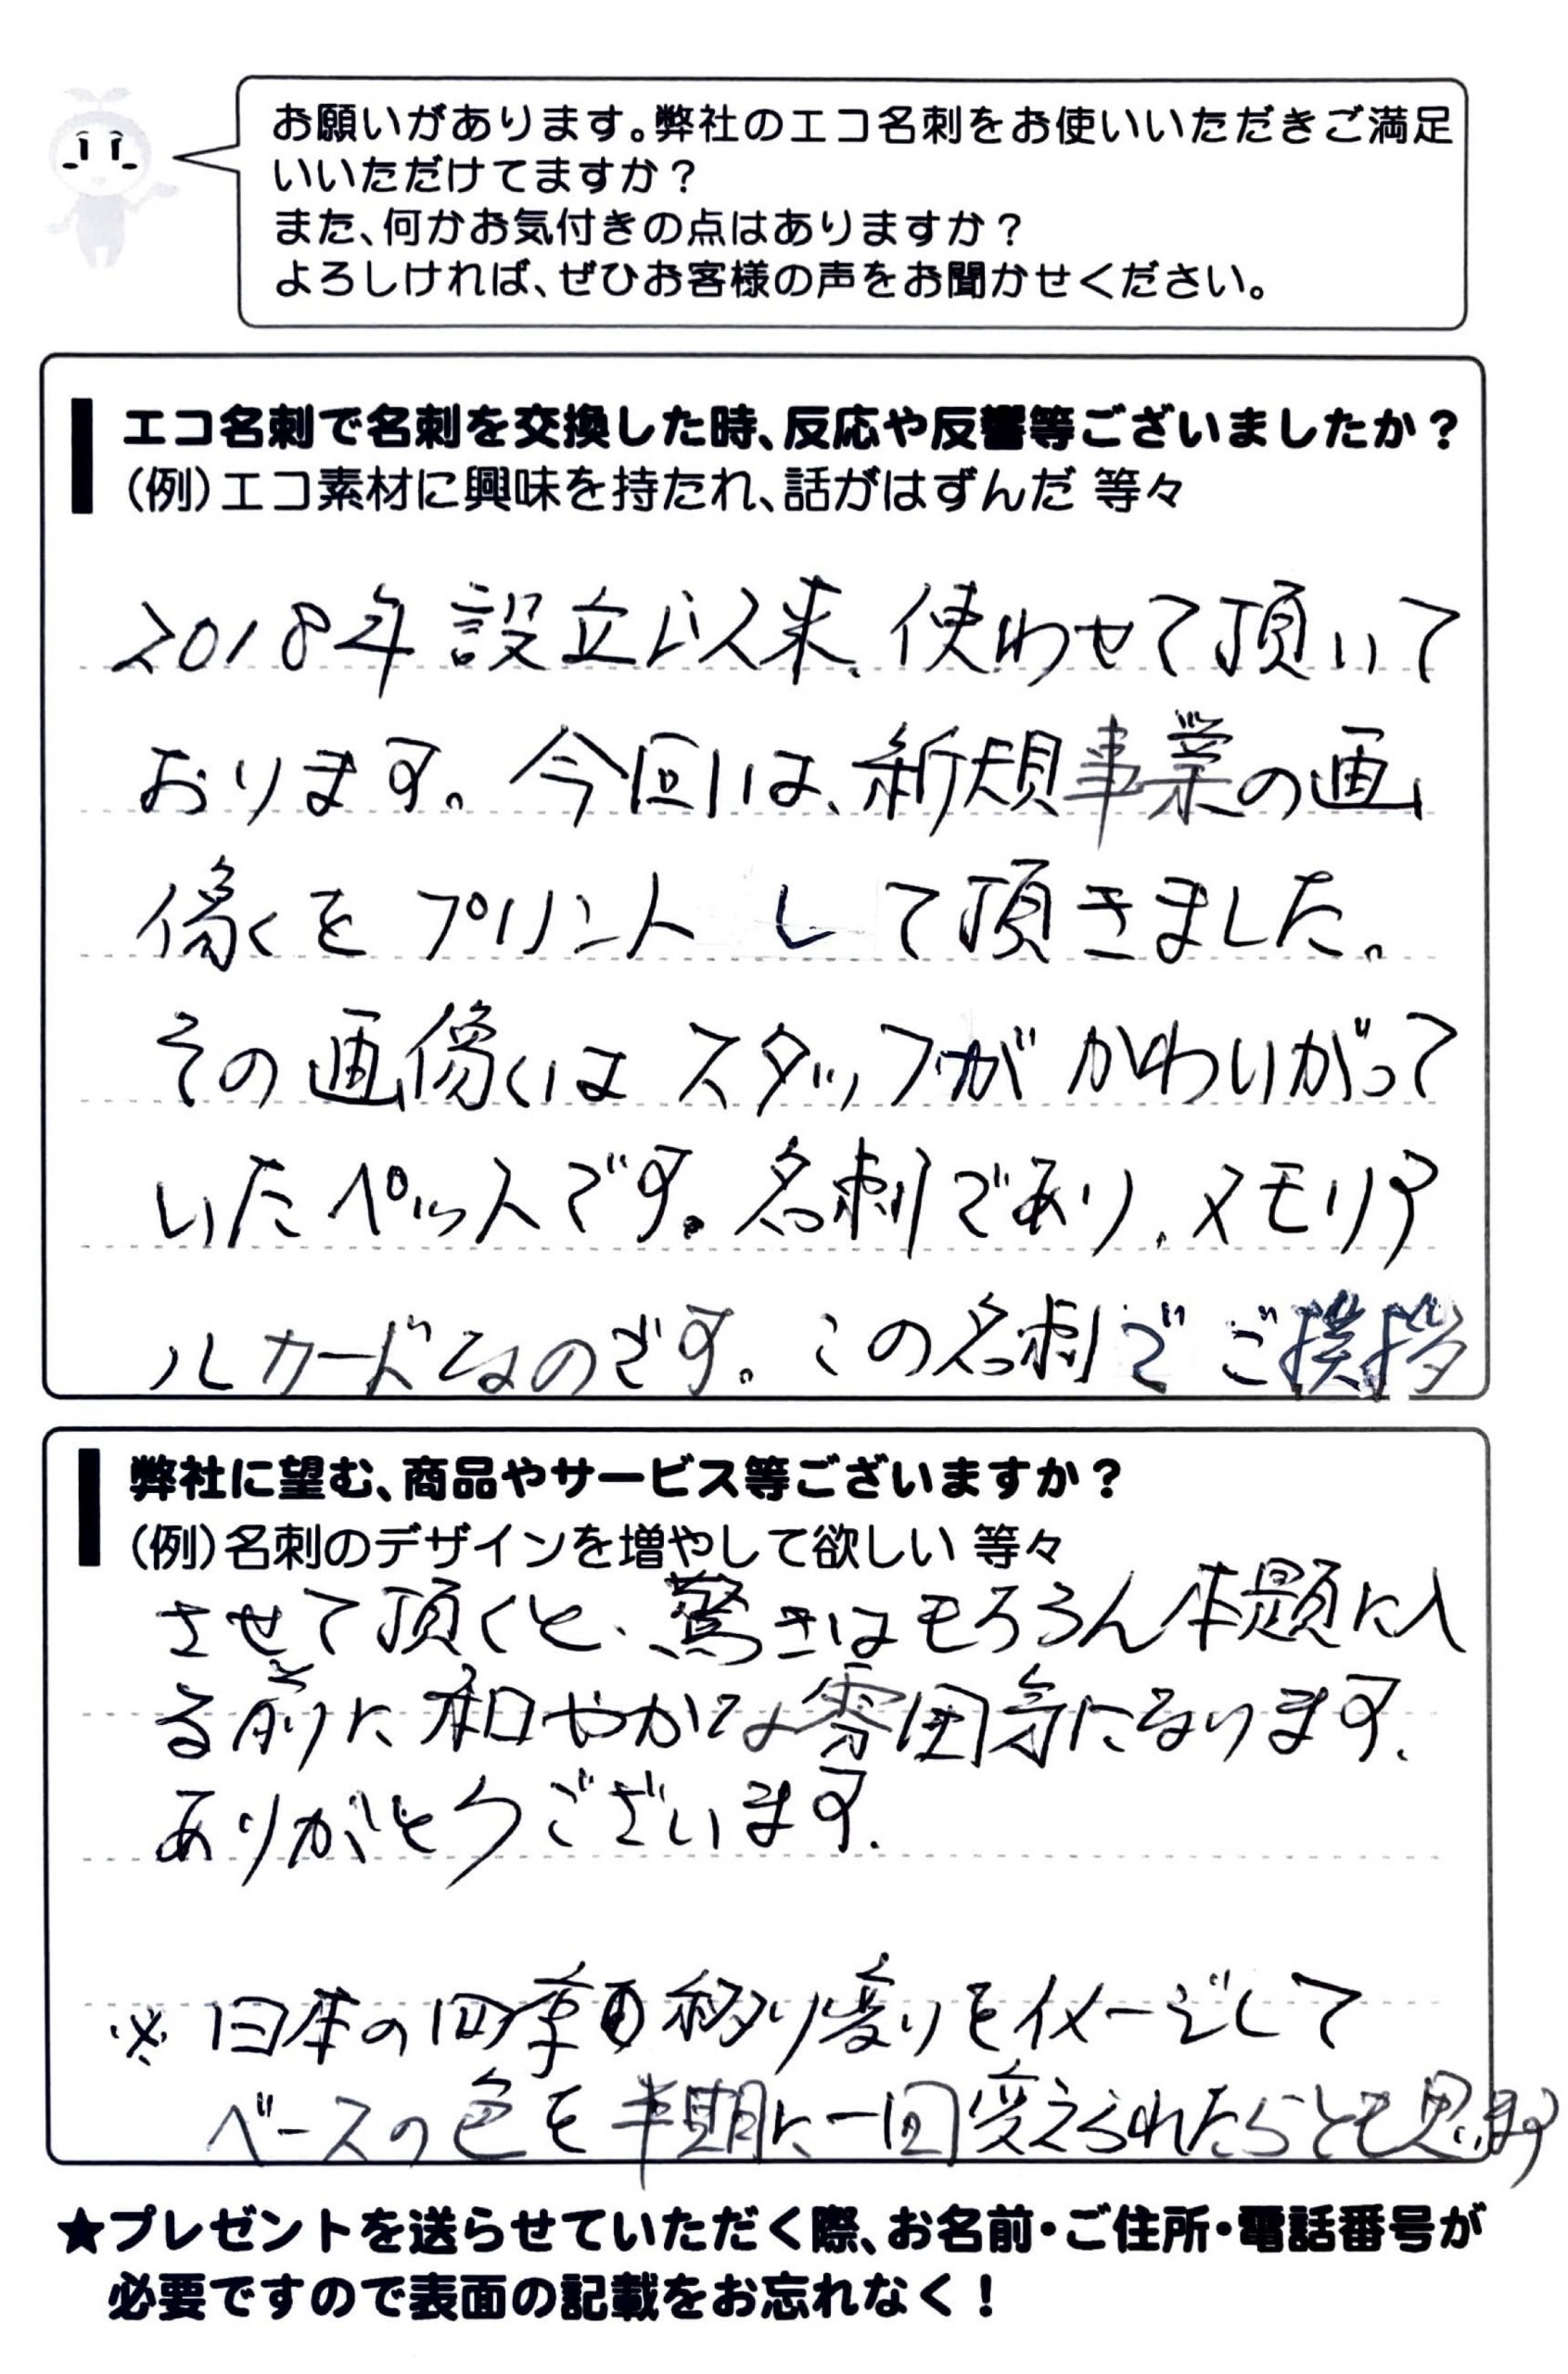 お願いがあります。弊社のエコ名刺をお使いいただきご満足
いいただけてますか？
また、何かお気付きの点はありますか？
よろしければ、ぜひお客様の声をお聞かせください。
エコ名刺で名刺を交換した時、反応や反響等ございましたか？
（例）エコ素材に興味を持たれ、話がはずんだ 等々
2018年設立以来、使わせて頂いて
おります。今回は、新規事業の画
像をプリントして頂きました。
その画像はスタッフがかわいがって
いたペットです。名刺であり、メモリア
ルカードなのです。この名刺でご挨拶
弊社に望む、商品やサービス等ございますか？
（例）名刺のデザインを増やして欲しい 等々
させて頂くと、驚きはもちろん本題に入
る前に和やかな雰囲気になります。
ありがとうございます。
※日本の四季の移り変りをイメージして
ベースの色を半期に一回変えられたらとも思います
★プレゼントを送らせていただく際、お名前・ご住所・電話番号が
必要ですので表面の記載をお忘れなく！